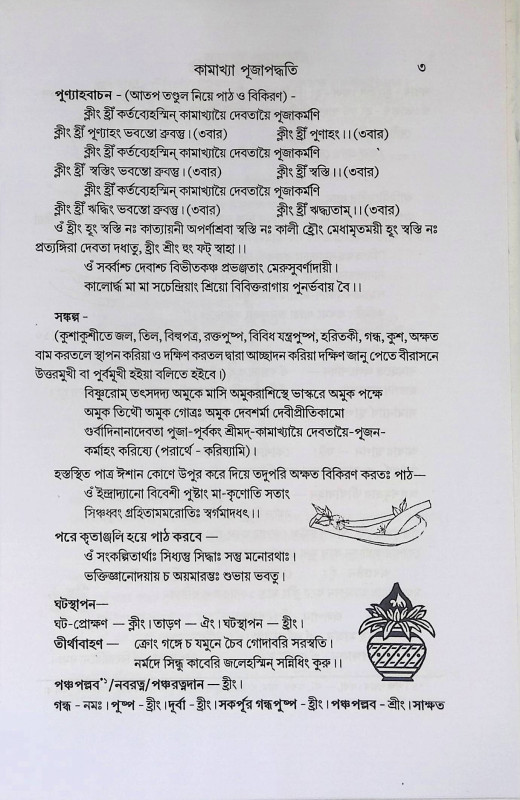 কামাখ্যা পূজাপদ্ধতি ৩
পূণ্যাহবাচন - (আতপ তণ্ডুল নিয়ে পাঠ ও বিকিরণ) -
ক্লীং হ্রীঁ কর্তব্যেহস্মিন্ কামাখ্যায়ৈ দেবতায়ৈ পূজাকর্মণি
ক্লীং হ্রীঁ পূণ্যাহং ভবন্তো ব্রুবন্তু। (৩বার) ক্লীং হ্রীঁ পূণাহং।। (৩বার)
ক্লীং হ্রীঁ কর্তব্যেহস্মিন্ কামাখ্যায়ৈ দেবতায়ৈ পূজাকর্মণি
ক্লীং হ্রীঁ স্বস্তিং ভবন্তো ব্রুবন্তু। (৩বার) ক্লীং হ্রীঁ স্বস্তি।। (৩বার)
ক্লীং হ্রীঁ কর্তব্যেহস্মিন্ কামাখ্যায়ৈ দেবতায়ৈ পূজাকর্মণি
ক্লীং হ্রীঁ ঋদ্ধিং ভবন্তো ব্রুবন্তু। (৩বার) ক্লীং হ্রীঁ ঋদ্ধ্যতাম্।। (৩বার)
ওঁ হ্রীং হূং স্বস্তি নঃ কাত্যায়নী অপর্ণাশ্রবা স্বস্তি নঃ কালী হ্রৌং মেধামৃতময়ী হূং স্বস্তি নঃ
প্রত্যঙ্গিরা দেবতা দধাতু, হ্রীং শ্রীং হুং ফট্ স্বাহা।।
ওঁ সর্ব্বাশ্চ দেবাশ্চ বিভীতকঞ্চ প্রভঞ্জতাং মেরুসুবর্ণাদায়ী।
কালোর্দ্ধ মা মা সচেন্দ্রিয়াং শ্রিয়ো বিবিক্তরাগায় পুনর্ভবায় বৈ।।
সঙ্কল্প -
(কুশাকুশীতে জল, তিল, বিল্বপত্র, রক্তপুষ্প, বিবিধ যন্ত্রপুষ্প, হরিতকী, গন্ধ, কুশ, অক্ষত
বাম করতলে স্থাপন করিয়া ও দক্ষিণ করতল দ্বারা আচ্ছাদন করিয়া দক্ষিণ জানু পেতে বীরাসনে
উত্তরমুখী বা পূর্বমূখী হইয়া বলিতে হইবে।)
বিষ্ণুরোম্ তৎসদদ্য অমুকে মাসি অমুকরাশিস্থে ভাস্করে অমুক পক্ষে
অমুক তিথৌ অমুক গোত্রঃ অমুক দেবশর্মা দেবীপ্রীতিকামো
গুর্বাদিনানাদেবতা পূজা-পূর্বকং শ্রীমদ্-কামাখ্যায়ৈ দেবতায়ৈ-পূজন-
কর্মাহং করিষ্যে (পরার্থে - করিষ্যামি)।
হস্তস্থিত পাত্র ঈশান কোণে উপুর করে দিয়ে তদুপরি অক্ষত বিকিরণ করতঃ পাঠ—
ওঁ ইন্দ্রাদ্যানো বিবেশী পুষ্টাং মা-কৃণোতি সতাং
সিঞ্চধ্বং গ্রহিতামমরোতিঃ স্বর্গমাদধৎ।।
পরে কৃতাঞ্জলি হয়ে পাঠ করবে —
ওঁ সংকল্পিতার্থাঃ সিধ্যন্তু সিদ্ধাঃ সন্তু মনোরথাঃ।
ভক্তিজ্ঞানোদয়ায় চ অয়মারম্ভঃ শুভায় ভবতু।
ঘটস্থাপন—
ঘট-প্রোক্ষণ — ক্লীং। তাড়ণ — ঐং। ঘটস্থাপন — হ্রীং।
তীর্থাবাহণ — ক্রোং গঙ্গে চ যমুনে চৈব গোদাবরি সরস্বতি।
নর্মদে সিন্ধু কাবেরি জলেহস্মিন্ সন্নিধিং কুরু।।
পঞ্চপল্লব*১/নবরত্ন/পঞ্চরত্নদান — হ্রীং।
গন্ধ - নমঃ। পুষ্প - হ্রীং। দূর্বা - হ্রীং। সকর্পূর গন্ধপুষ্প - হ্রীং। পঞ্চপল্লব - শ্রীং। সাক্ষত